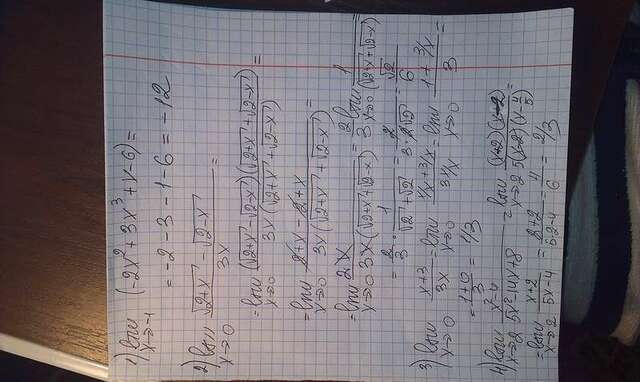 1) lim x→-1 (-2x² + 3x³ + x - 6) =
= -2 - 3 - 1 - 6 = -12
2) lim x→0 (√2+x - √2-x) / 3x =
= lim x→0 (√2+x - √2-x)(√2+x + √2-x) / 3x(√2+x + √2-x) =
= lim x→0 2+x-2+x / 3x(√2+x + √2-x) =
= lim x→0 2x / 3x(√2+x + √2-x) = 2/3 lim x→0 1 / (√2+x + √2-x) =
= 2/3 · 1 / √2+√2 = 2 / 3·2√2 = √2 / 6
3) lim x→0 x+3 / 3x = lim x→0 1/x + 3/x / 3 1/x = lim x→0 1 + 3/x / 3 =
= 1+0 / 3 = 1/3
4) lim x→2 x²-4 / 5x²-14x+8 = lim x→2 (x+2)(x-2) / 5(x-2)(x-4/5) =
= lim x→2 x+2 / 5x-4 = 2+2 / 5·2-4 = 4/6 = 2/3